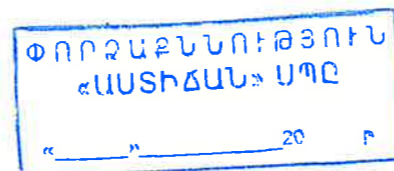 ՓՈՐՁԱՔՆՆՈՒԹՅՈՒՆ
«ԱՍՏԻՃԱՆ» ՍՊԸ
«______»______________20 թ